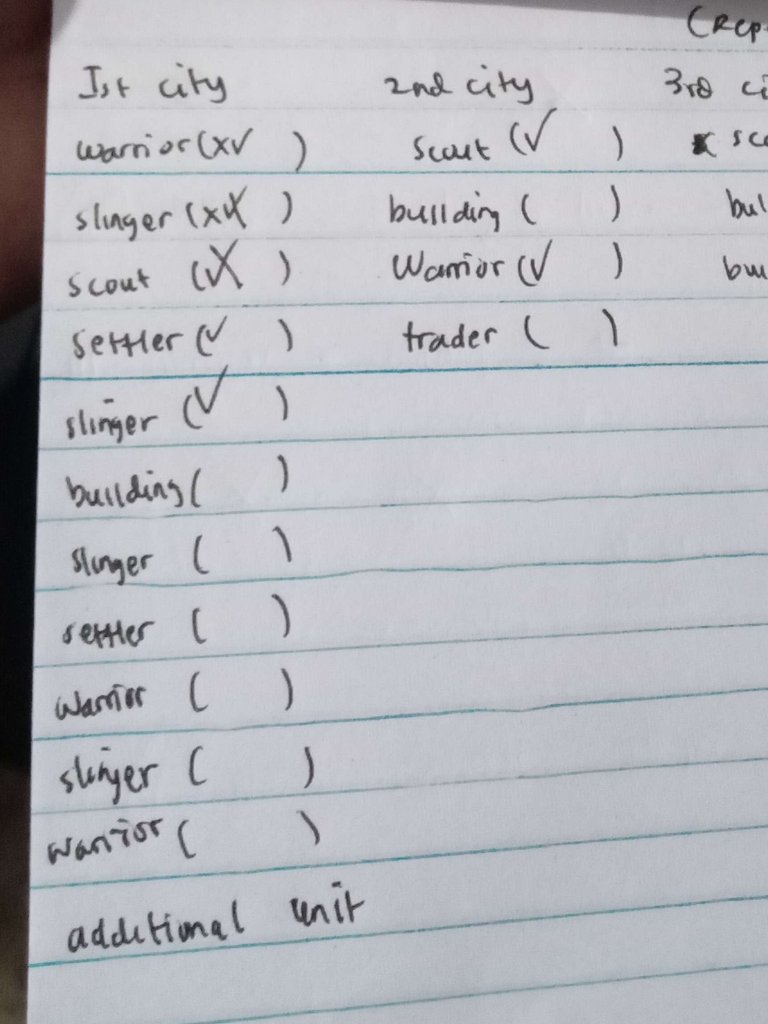 (Rep
Ist city 2nd city 3rd ci
warrior (x✓ ) scout (✓ ) sco
slinger (x ) building ( ) bui
scout ( ) Warrior (✓ ) bui
settler (✓ ) trader ( )
slinger (✓ )
building ( )
slinger ( )
settler ( )
warrior ( )
slinger ( )
warrior ( )
additional unit